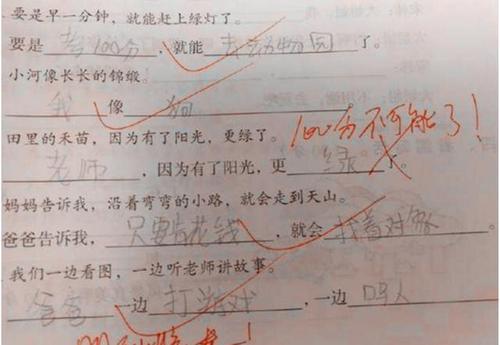 要是早一分钟，就能赶上绿灯了。
要是考100分，就能去动物园了。
小河像长长的锦缎。
我像狗
100分不可能了！
田里的禾苗，因为有了阳光，更绿了。
老师，因为有了阳光，更绿了。
妈妈告诉我，沿着弯弯的小路，就会走到天山。
爸爸告诉我，只要肯花钱，就会找着对象
我们一边看图，一边听老师讲故事。
爸爸一边打游戏，一边骂人